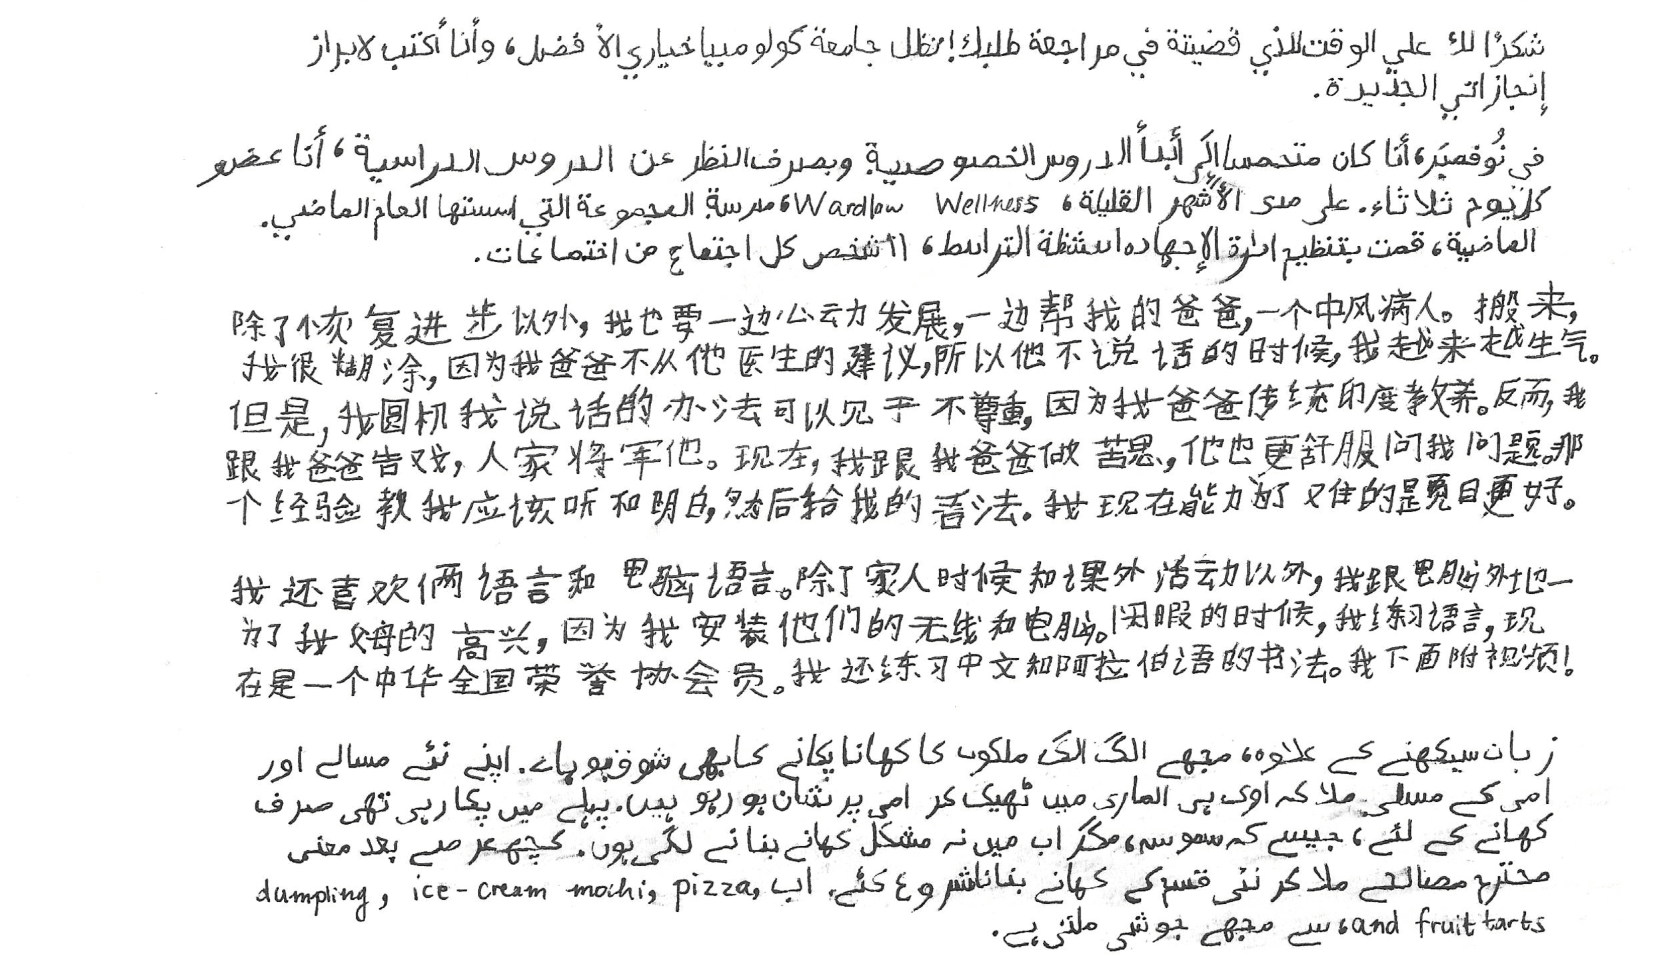 شكرًا لك علي الوقت للذي قضيتة في مراجعة طلبك! تظل جامعة كولومبيا خياري الأفضل، وأنا أكتب لابراز
إنجازاتي الجديدة.
في نُوفمبَر، أنا كان متحمسا إلَى أبدأ الدروس الخصوصية وبصرف النظر عن الدروس الدراسية، أنا عضو
كل يوم ثلاثاء. على مدى الأشهر القليلة، Wardlow Wellness، مدرسة المجموعة التي اسستها العام الماضي.
الماضية، قمت بتنظيم ادارة الإجهاد، انشظة الترابط، 11 شخص كل اجتماع من اجتماعات.
除了恢复进步以外，我也要一边心动发展，一边帮我的爸爸，一个中风病人。搬来，
我很糊涂，因为我爸爸不从他医生的建议，所以他不说话的时候，我越来越生气。
但是，我圆机我说话的办法可以见于不尊重，因为我爸爸传统印度教养。反而，我
跟我爸爸告戏，人家将军他。现在，我跟我爸爸做苦思，他也更舒服问我问题。那
个经验教我应该听和明白，然后给我的看法。我现在能力为了难的题目更好。
我还喜欢俩语言和电脑语言。除了家人时候和课外活动以外，我跟电脑外地一
为了我父母的高兴，因为我安装他们的无线和电脑。闲暇的时候，我练习语言，现
在是一个中华全国荣誉协会员。我还练习中文和阿拉伯语的书法。我下面附视频！
زبان سیکھنے کے علاوہ، مجھے الگ الگ ملکوں کا کھانا پکانے کا بھی شوق ہو ہاے. اپنے نئے مسالے اور
امی کے مسلی ملا کہ اوی ہی الماری میں ٹھیک کر امی پرشان ہو رہو ہیں. پہلے میں پکا رہی تھی صرف
کھانے کے لئے، جیسے کہ سموسہ، مگر اب میں نہ مشکل کھانے بنانے لگی ہوں. کچھ عرصے بعد معنی
مختر مصالحے ملا کر نئی قسم کے کھانے بنانا شروع کئے. اب dumpling, ice-cream mochi, pizza,
and fruit tarts، سے مجھے جوشی ملتی ہے.